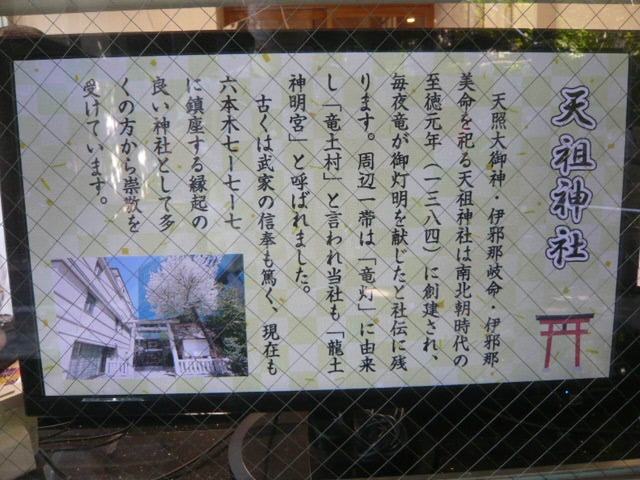 天祖神社
天照大御神・伊邪那岐命・伊邪那
美命を祀る天祖神社は南北朝時代の
至徳元年（一三八四）に創建され、
毎夜竜が御灯明を献じたと社伝に残
ります。周辺一帯は「竜灯」に由来
し「竜土村」と言われ当社も「龍土
神明宮」と呼ばれました。
古くは武家の信奉も篤く、現在も
六本木七ー七ー七
に鎮座する縁起の
良い神社として多
くの方から崇敬を
受けています。